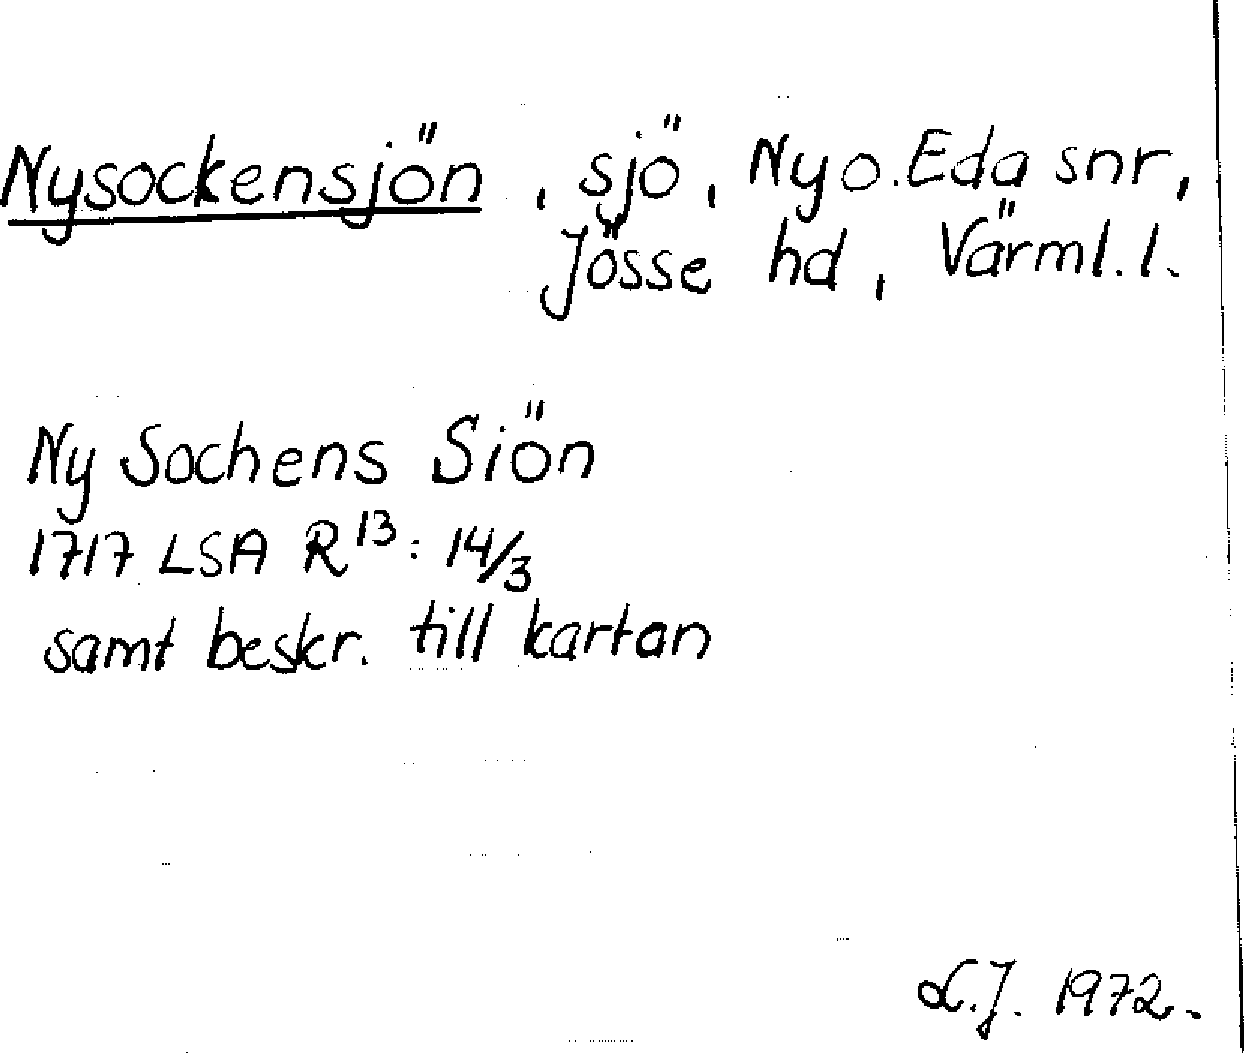 Nysockensjön, sjö, Ny o. Eda snr,
Jösse hd, Värml. l.
Ny Sochens Siön
1717 LSA R13: 14/3
samt beskr. till kartan
L.J. 1972.